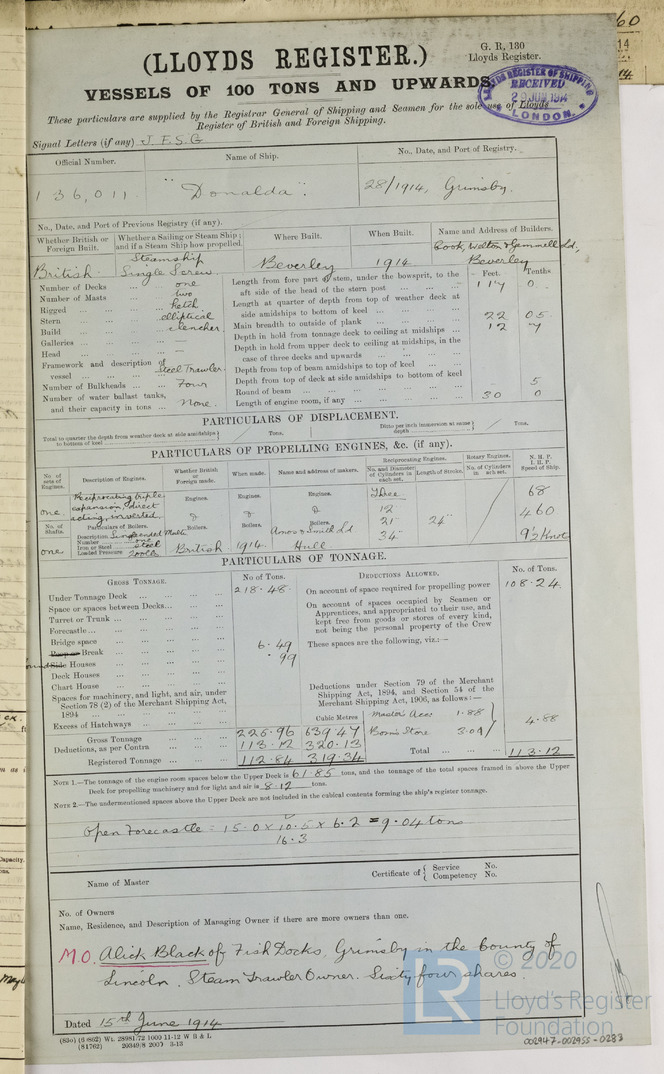 60
14
(LLOYDS REGISTER.)
G. R, 130
Lloyds Register.
VESSELS OF 100 TONS AND UPWARDS.
LLOYDS REGISTER OF SHIPPING
RECEIVED
LONDON.
These particulars are supplied by the Registrar General of Shipping and Seamen for the sole use of Lloyds
Register of British and Foreign Shipping.
Signal Letters (if any) J.F.S.G
Official Number. Name of Ship. No., Date, and Port of Registry.
136,011. "Donalda". 28/1914, Grimsby.
No., Date, and Port of Previous Registry (if any).
Whether British or Foreign Built. Whether a Sailing or Steam Ship; and if a Steam Ship how propelled. Where Built. When Built. Name and Address of Builders.
British. Steamship Single Screw. Beverley 1914 Cook, Welton & Gemmell Ld, Beverley
Number of Decks ... one
Number of Masts ... two
Rigged ... ketch
Stern ... elliptical
Build ... clencher
Galleries ... —
Head ... —
Framework and description of vessel ... Steel Trawler
Number of Bulkheads ... Four
Number of water ballast tanks, and their capacity in tons ... None.
Feet. Tenths
Length from fore part of stem, under the bowsprit, to the aft side of the head of the stern post ... 117 0
Length at quarter of depth from top of weather deck at side amidships to bottom of keel ...
Main breadth to outside of plank ... 22 05
Depth in hold from tonnage deck to ceiling at midships ... 12 7
Depth in hold from upper deck to ceiling at midships, in the case of three decks and upwards ...
Depth from top of beam amidships to top of keel ...
Depth from top of deck at side amidships to bottom of keel
Round of beam ... 5
Length of engine room, if any ... 30 0
PARTICULARS OF DISPLACEMENT.
Total to quarter the depth from weather deck at side amidships to bottom of keel Tons. Ditto per inch immersion at same depth Tons.
PARTICULARS OF PROPELLING ENGINES, &c. (if any).
No. of sets of Engines. Description of Engines. Whether British or Foreign made. When made. Name and address of makers. Reciprocating Engines. Rotary Engines. N. H. P. I. H. P. Speed of Ship.
No. and Diameter of Cylinders in each set. Length of Stroke. No. of Cylinders in each set.
one. Reciprocating triple expansion, direct acting, inverted. Engines. Engines. Engines. Three 68
12" 460
21" 24"
34" 9½ Knots
No. of Shafts. Particulars of Boilers. Boilers. Boilers. Boilers.
Description
Number one
Iron or Steel steel
Loaded Pressure 200lb
one British 1914. Amos & Smith Ld Hull
PARTICULARS OF TONNAGE.
GROSS TONNAGE. No of Tons. DEDUCTIONS ALLOWED. No. of Tons.
Under Tonnage Deck ... 218.48
Space or spaces between Decks...
Turret or Trunk ...
Forecastle...
Bridge space
Poop or Break ... 6.49
Side Houses ... .99
Deck Houses
Chart House
Spaces for machinery, and light, and air, under Section 78 (2) of the Merchant Shipping Act, 1894
Excess of Hatchways
Cubic Metres
Gross Tonnage 225.96 639.47
Deductions, as per Contra 113.12 320.13
Registered Tonnage 112.84 319.34
On account of space required for propelling power 108.24
On account of spaces occupied by Seamen or Apprentices, and appropriated to their use, and kept free from goods or stores of every kind, not being the personal property of the Crew
These spaces are the following, viz.:—
Deductions under Section 79 of the Merchant Shipping Act, 1894, and Section 54 of the Merchant Shipping Act, 1906, as follows:—
Master's Acco 1.88
Bosn's Store 3.00 4.88
Total ... 113.12
NOTE 1.—The tonnage of the engine room spaces below the Upper Deck is 61.85 tons, and the tonnage of the total spaces framed in above the Upper
Deck for propelling machinery and for light and air is 8.12 tons.
NOTE 2.—The undermentioned spaces above the Upper Deck are not included in the cubical contents forming the ship's register tonnage.
Open Forecastle = 15.0 x 10.5 x 6.2 = 9.04 tons
16.3
Name of Master
Certificate of { Service No.
Competency No.
No. of Owners
Name, Residence, and Description of Managing Owner if there are more owners than one.
M.O. Alick Black of Fish Docks, Grimsby in the County of
Lincoln. Steam Trawler Owner. Sixty four shares.
Dated 15th June 1914
© 2020
LR
Lloyd's Register
Foundation
002947-002955-0283